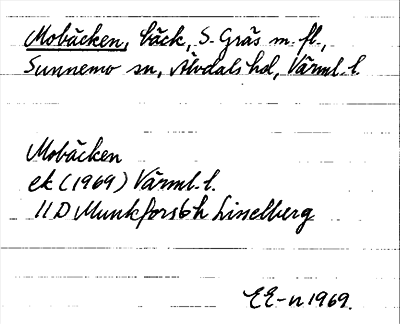 Mobäcken, bäck, S. Gräs m. fl.,
Sunnemo sn, Älvdals hd, Värml. l.
Mobäcken
ek (1969) Värml. l.
11 D Munkfors 6h Lisselberg
EE-n 1969.